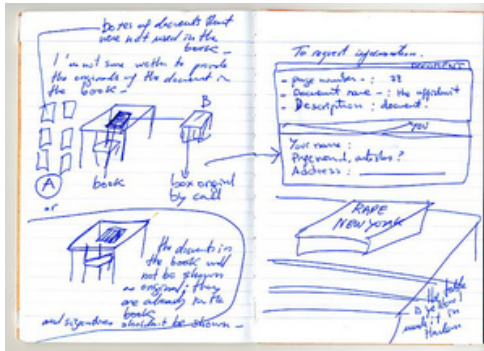 boxes of documents that
were not used in the
book -
I'm not sure whether to provide
the originals of the document in
the book -
B
A
book
box original
by call
or
the documents in
the book will
not be shown
as original; they
are already in the
book
and signatures shouldn't be shown -
To request information.
DOCUMENT
- page number - : 28
- Document name - : the affidavit
- Description : document -
YOU
Your name :
articles ?
Address :
RAPE
NEW YORK
the table
is yellow
made it in
Harlem